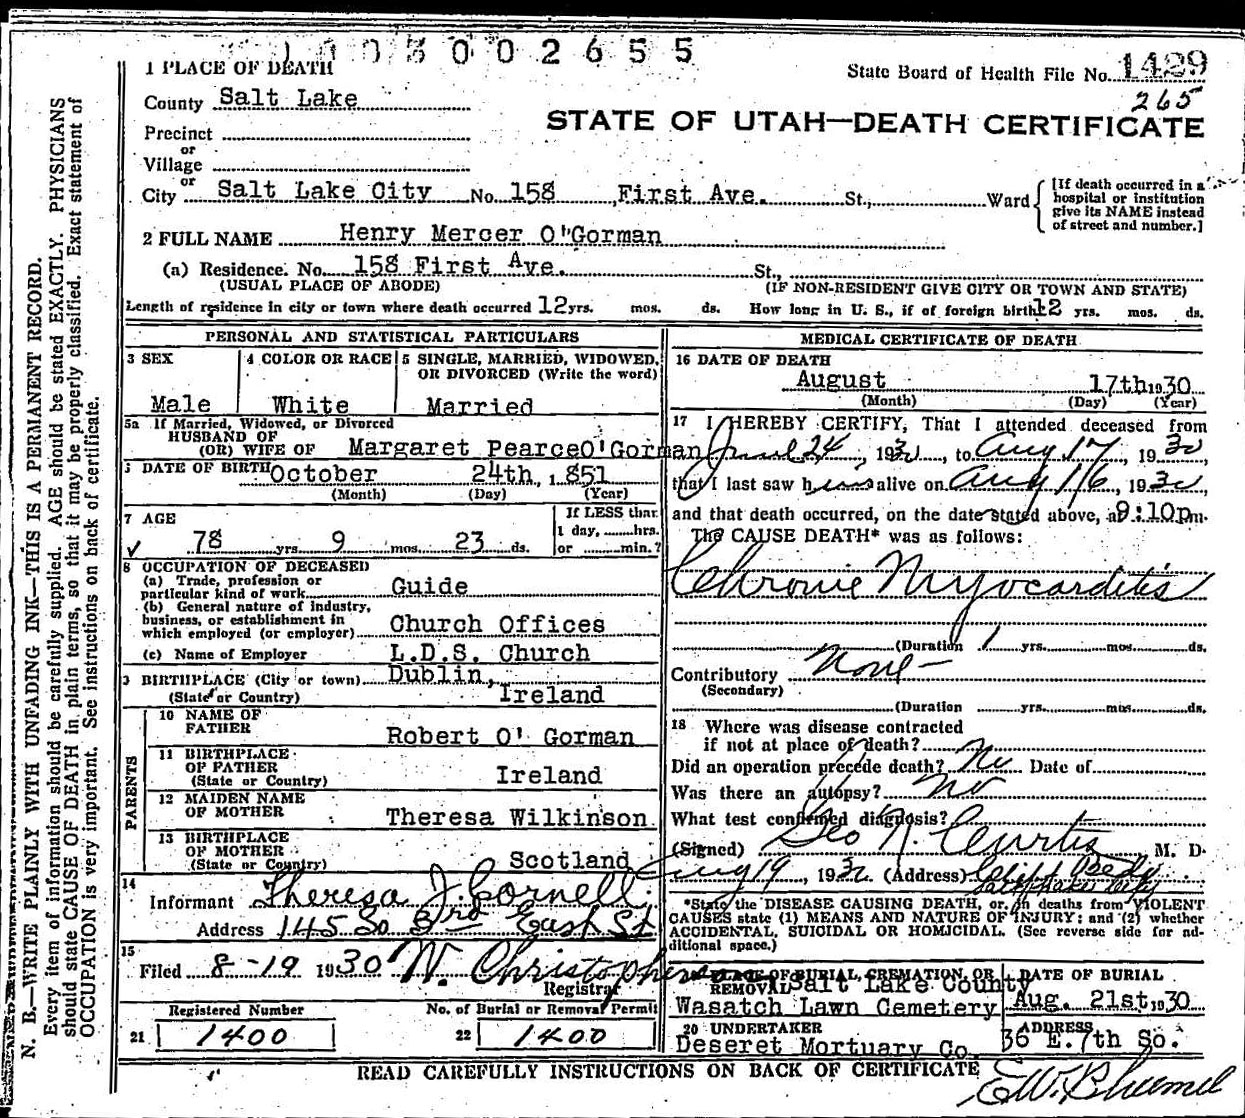 1003002655
1 PLACE OF DEATH
State Board of Health File No. 1429
265
County Salt Lake
STATE OF UTAH—DEATH CERTIFICATE
Precinct
or
Village
or
City Salt Lake City No. 158 First Ave. St., Ward
[If death occurred in a hospital or institution give its NAME instead of street and number.]
2 FULL NAME Henry Mercer O'Gorman
(a) Residence. No. 158 First Ave. St.,
(USUAL PLACE OF ABODE) (IF NON-RESIDENT GIVE CITY OR TOWN AND STATE)
Length of residence in city or town where death occurred 12 yrs. mos. ds. How long in U. S., if of foreign birth 12 yrs. mos. ds.
PERSONAL AND STATISTICAL PARTICULARS
3 SEX
Male
4 COLOR OR RACE
White
5 SINGLE, MARRIED, WIDOWED,
OR DIVORCED (Write the word)
Married
5a If Married, Widowed, or Divorced
HUSBAND OF
(OR) WIFE OF Margaret PearceO'Gorman
DATE OF BIRTH October 24th, 1851
(Month) (Day) (Year)
7 AGE
78 yrs. 9 mos. 23 ds.
If LESS than
1 day, hrs.
or min.?
8 OCCUPATION OF DECEASED
(a) Trade, profession or
particular kind of work Guide
(b) General nature of industry,
business, or establishment in
which employed (or employer) Church Offices
(c) Name of Employer L.D.S. Church
9 BIRTHPLACE (City or town) Dublin,
(State or Country) Ireland
PARENTS
10 NAME OF
FATHER Robert O' Gorman
11 BIRTHPLACE
OF FATHER
(State or Country) Ireland
12 MAIDEN NAME
OF MOTHER Theresa Wilkinson
13 BIRTHPLACE
OF MOTHER
(State or Country) Scotland
14
Informant Theresa J. Cornell
Address 145 So 3rd East St
15
Filed 8-19 1930 W. Christophers
Registrar
Registered Number
21 1400
No. of Burial or Removal Permit
22 1400
MEDICAL CERTIFICATE OF DEATH
16 DATE OF DEATH
August 17th 1930
(Month) (Day) (Year)
17 I HEREBY CERTIFY, That I attended deceased from
June 24, 1930, to Aug 17, 1930,
that I last saw him alive on Aug 16, 1930,
and that death occurred, on the date stated above, at 9:10pm.
The CAUSE DEATH* was as follows:
Chronic Myocarditis
(Duration 1 yrs. mos. ds.
Contributory None
(Secondary)
(Duration yrs. mos. ds.
18 Where was disease contracted
if not at place of death?
Did an operation precede death? No Date of
Was there an autopsy? No
What test confirmed diagnosis?
(Signed) Geo N. Curtis M. D.
Aug 19, 1930 (Address)
Salt Lake City
*State the DISEASE CAUSING DEATH, or, in deaths from VIOLENT
CAUSES state (1) MEANS AND NATURE OF INJURY; and (2) whether
ACCIDENTAL, SUICIDAL OR HOMICIDAL. (See reverse side for ad-
ditional space.)
PLACE OF BURIAL, CREMATION, OR
REMOVAL Salt Lake County
Wasatch Lawn Cemetery
DATE OF BURIAL
Aug. 21st, 1930
20 UNDERTAKER
Deseret Mortuary Co.
ADDRESS
36 E. 7th So.
READ CAREFULLY INSTRUCTIONS ON BACK OF CERTIFICATE
N. B.—WRITE PLAINLY WITH UNFADING INK—THIS IS A PERMANENT RECORD.
Every item of information should be carefully supplied. AGE should be stated EXACTLY. PHYSICIANS
should state CAUSE OF DEATH in plain terms, so that it may be properly classified. Exact statement of
OCCUPATION is very important. See instructions on back of certificate.